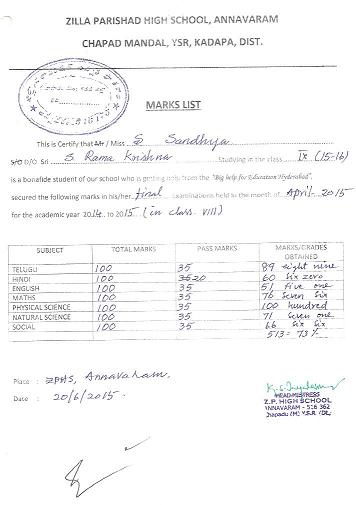 ZILLA PARISHAD HIGH SCHOOL, ANNAVARAM
CHAPAD MANDAL, YSR, KADAPA, DIST.
MARKS LIST
This is Certify that Mr / Miss S Sandhya
S/O D/O Sri S Rama Krishna Studying in the class IX (15-16)
is a bonafide student of our school who is getting help from the "Big help for Education Hyderabad",
secured the following marks in his/her, final examinations held in the month of April-2015
for the academic year 2014 to 2015 (in class VIII)
SUBJECT TOTAL MARKS PASS MARKS MARKS/GRADES OBTAINED
TELUGU 100 35 89 eight nine
HINDI 100 3520 60 six zero
ENGLISH 100 35 51 five one
MATHS 100 35 76 seven six
PHYSICAL SCIENCE 100 35 100 hundred
NATURAL SCIENCE 100 35 71 seven one
SOCIAL 100 35 66 six six
513= 73%
Place : ZPHS, Annavaram.
Date : 20/6/2015.
HEADMISTRESS
Z.P. HIGH SCHOOL
ANNAVARAM - 516 362